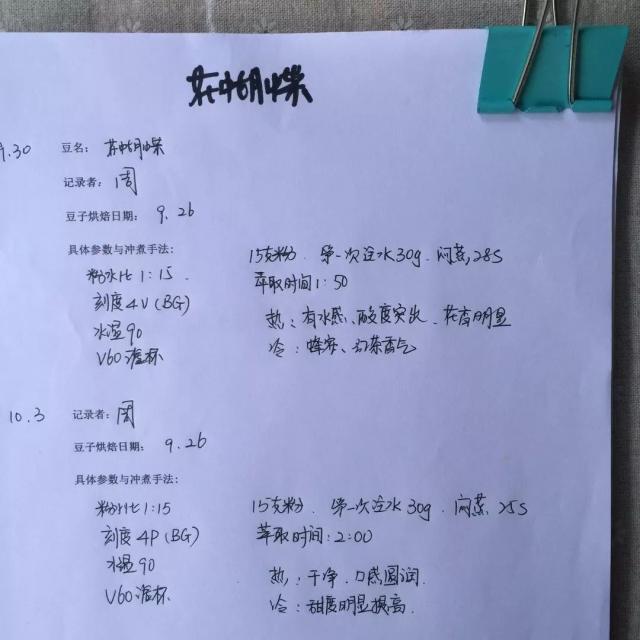 花蝴蝶
9.30 豆名: 花蝴蝶
记录者: 周
豆子烘焙日期: 9.26
具体参数与冲煮手法:
粉水比 1:15
15克粉、第一次注水30g、闷蒸,28S
刻度 4V (BG)
萃取时间1:50
水温 90
热: 有水感、酸度突出、花香明显
V60滤杯
冷: 蜂蜜、红茶香气
10.3 记录者: 周
豆子烘焙日期: 9.26
具体参数与冲煮手法:
粉水比 1:15
15克粉、第一次注水30g、闷蒸、25S
刻度 4P (BG)
萃取时间: 2:00
水温 90
热: 干净、口感圆润
V60滤杯
冷: 甜度明显提高